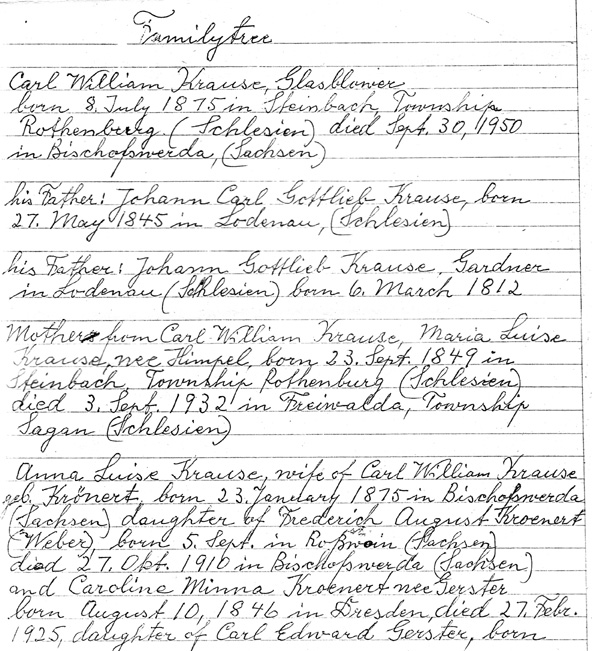 Familytree
Carl William Krause, Glasblower
born 8. July 1875 in Steinbach, Township
Rothenburg (Schlesien) died Sept. 30, 1950
in Bischofswerda, (Sachsen)
his Father: Johann Carl Gottlieb Krause, born
27. May 1845 in Lodenau, (Schlesien)
his Father: Johann Gottlieb Krause, Gardner
in Lodenau (Schlesien) born 6. March 1812
Mother from Carl William Krause, Maria Luise
Krause, nee Himpel, born 23. Sept. 1849 in
Steinbach, Township Rothenburg (Schlesien)
died 3. Sept. 1932 in Freiwalda, Township
Sagan (Schlesien)
Anna Luise Krause, wife of Carl William Krause
geb. Krönert, born 23. January 1875 in Bischofswerda
(Sachsen) daughter of Frederich August Kroenert
(Weber), born 5. Sept. in Roßwein (Sachsen)
died 27. Okt. 1916 in Bischofswerda (Sachsen)
and Caroline Minna Kroenert nee Gerster
born August 10, 1846 in Dresden, died 27. Febr.
1925, daughter of Carl Edward Gerster, born